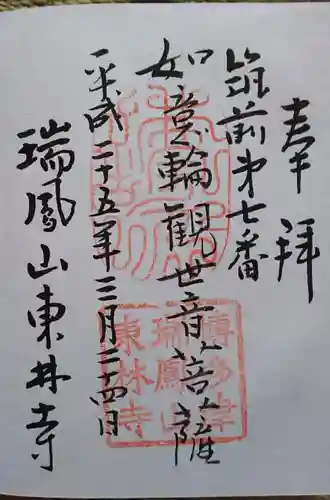 奉拝
筑前第七番
如意輪観世音菩薩
平成二十五年三月二十四日
瑞鳳山東林寺
博多津
瑞鳳山
東林寺